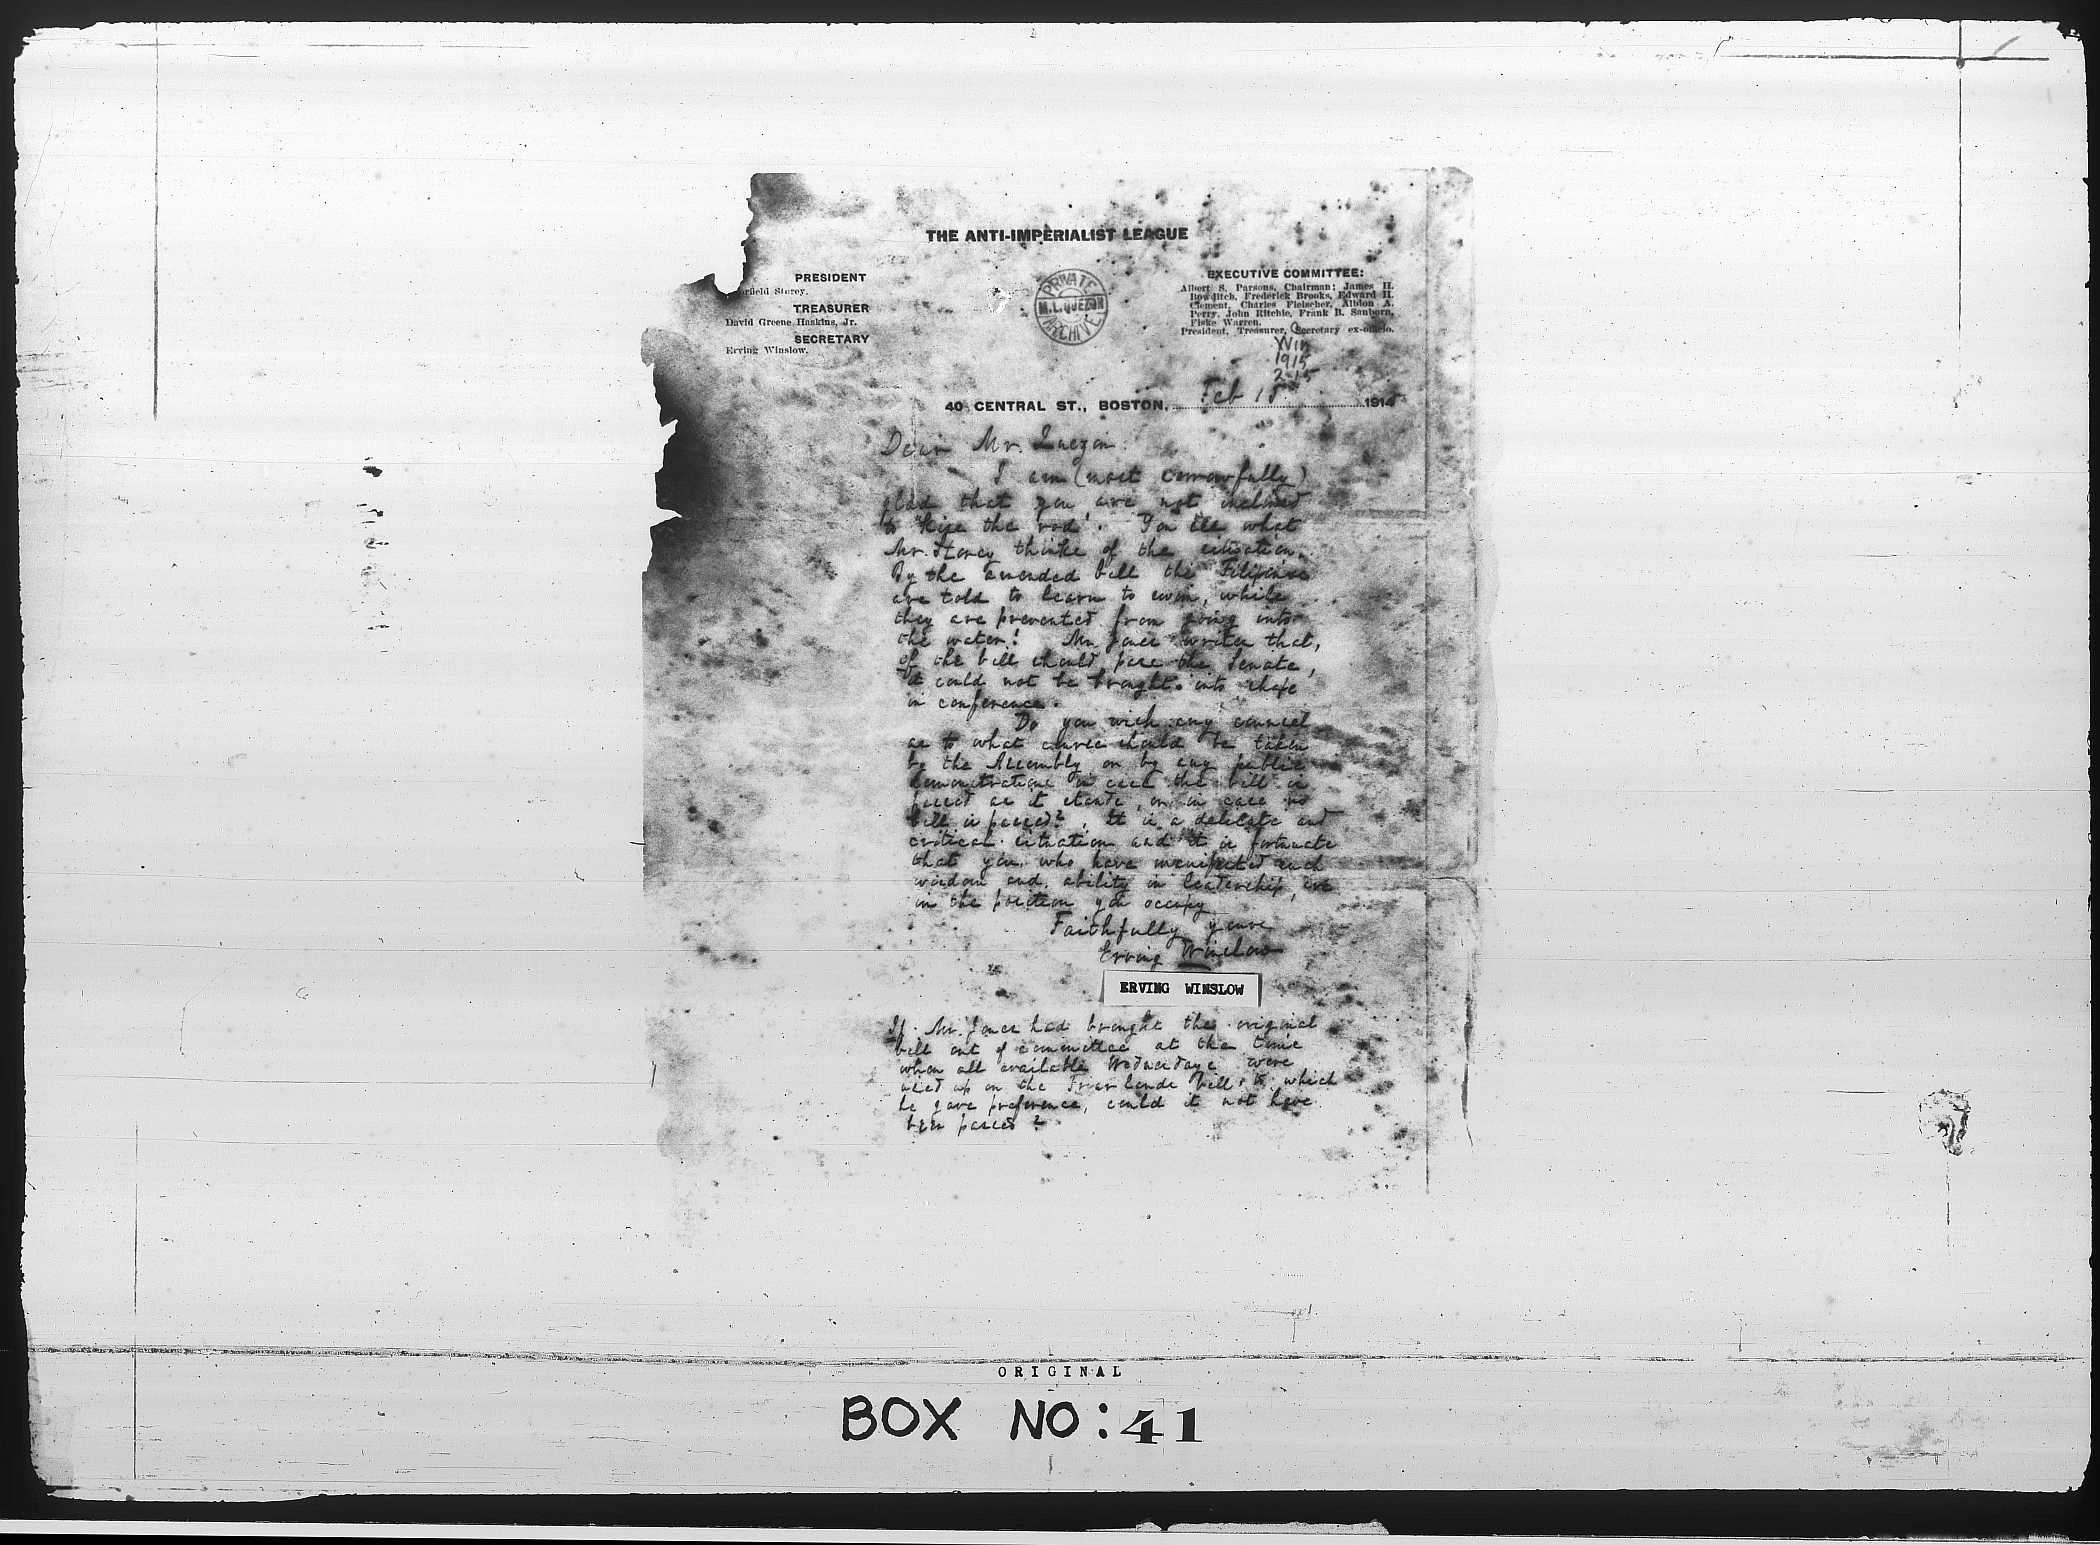 THE ANTI-IMPERIALIST LEAGUE
PRESIDENT
rfield Storey.
TREASURER
David Greene Haskins, Jr.
SECRETARY
Erving Winslow.
PRIVATE
M.L.QUEZON
ARCHIVE
EXECUTIVE COMMITTEE:
Albert S. Parsons, Chairman; James H.
Bowditch, Frederick Brooks, Edward H.
Clement, Charles Fleischer, Albion A.
Perry, John Ritchie, Frank B. Sanborn,
Fiske Warren.
President, Treasurer, Secretary ex-officio.
Win
1915
2-15
40 CENTRAL ST., BOSTON, Feb 15 1914
Dear Mr. Quezon:
I am (most sorrowfully)
glad that you are not inclined
to "kiss the rod". You see what
Mr. Storey thinks of the situation.
By the amended bill the Filipinos
are told to learn to swim, while
they are prevented from going into
the water! Mr. Jones writes that,
if the bill should pass the Senate,
it could not be brought into shape
in conference.
Do you wish any counsel
as to what course should be taken
by the Assembly or by any public
demonstrations in case the bill is
passed as it stands, or in case no
bill is passed? It is a delicate and
critical situation and it is fortunate
that you, who have manifested such
wisdom and ability in leadership, are
in the position you occupy
Faithfully yours
Erving Winslow
ERVING WINSLOW
If Mr. Jones had brought the original
bill out of committee at the time
when all available Wednesdays were
used up on the Friar lands bill, to which
he gave preference, could it not have
been passed?
ORIGINAL
BOX NO: 41